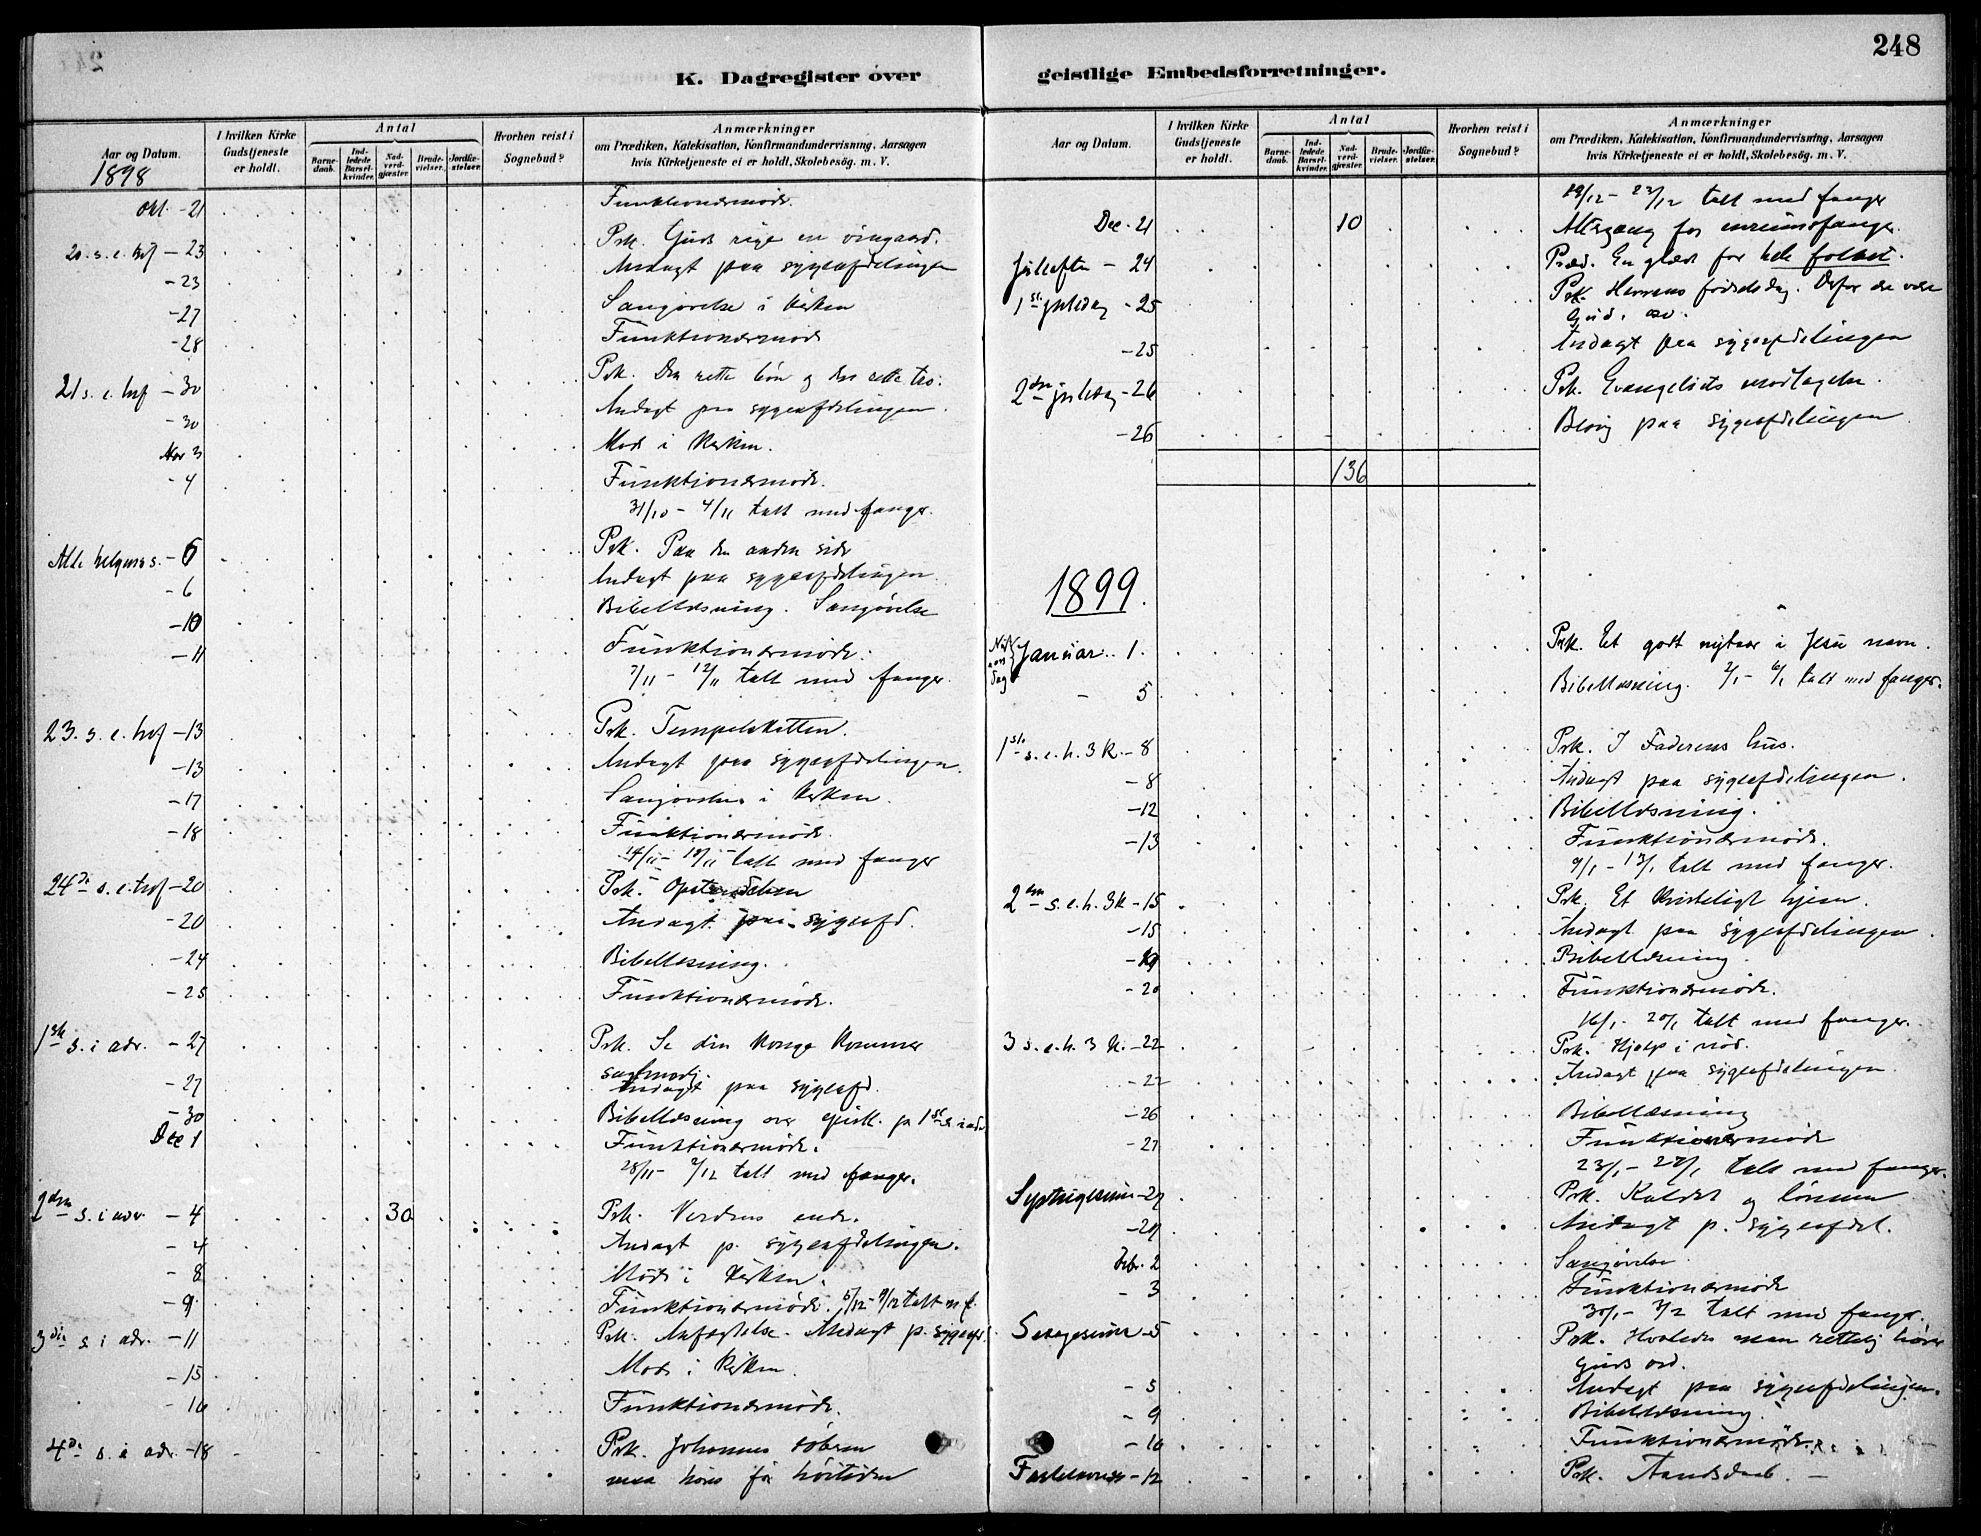 248
K. Dagregister over geistlige Embedsforretninger.
Aar og Datum.
I hvilken Kirke Gudstjeneste er holdt.
Antal
Barnedaab.
Indledede Barselkvinder.
Nadverdgjæster.
Brudevielser.
Jordfæstelser.
Hvorhen reist i Sognebud?
Anmærkninger
om Prædiken, Katekisation, Konfirmandundervisning, Aarsagen
hvis Kirketjeneste ei er holdt, Skolebesög. m. V.
1898
Okt. - 21 Funktionærmöde.
20. s. e. tref - 23 Prk. Guds rige en vingaard.
- 23 Andagt paa sygeafdelingen
- 27 Sangövelse i kirken
- 28 Funktionærmöde
21 s. e. tref - 30 Prk. Den rette bön og den rette tro.
- 30 Andagt paa sygeafdelingen.
Nov 3 Möde i kirken.
- 4 Funktionærmöde.
31/10 - 4/11 talt med fanger.
Alle helgens s. - 6 Prk. Paa den anden side
- 6 Andagt paa sygeafdelingen.
- 10 Bibellæsning. Sangövelse
- 11 Funktionærmöde.
7/11 - 12/11 talt med fanger.
23. s. e. tref - 13 Prk. Tempelskatten.
- 13 Andagt paa sygeafdelingen.
- 17 Sangövelse i kirken.
- 18 Funktionærmöde.
14/11 - 18/11 talt med fanger
24de s. e. tref - 20 Prk. Opstandelsen
- 20 Andagt paa sygeafd.
- 24 Bibellæsning.
- 25 Funktionærmöde.
1ste s. i adv. - 27 Prk. Se din konge kommer
sagtmodig.
- 27 Andagt paa sygeafd.
- 30 Bibellæsning over epist. p. 1ste s. i adv
Dec 1 Funktionærmöde.
28/11 - 2/12 talt med fanger.
2den s. i adv. - 4 30 Prk. Verdens ende.
- 4 Andagt p. sygeafdelingen.
- 8 Möde i kirken.
- 9 Funktionærmöde. 5/12 - 9/12 talt m f.
3die s. i adv. - 11 Prk. Anfægtelse. Andagt p. sygeafd.
- 15 Möde i kirken.
- 16 Funktionærmöde.
4de s. i adv. - 18 Prk. Johannes döberen
maa höres för höitiden
Aar og Datum.
I hvilken Kirke Gudstjeneste er holdt.
Antal
Barnedaab.
Indledede Barselkvinder.
Nadverdgjæster.
Brudevielser.
Jordfæstelser.
Hvorhen reist i Sognebud?
Anmærkninger
om Prædiken, Katekisation, Konfirmandundervisning, Aarsagen
hvis Kirketjeneste ei er holdt, Skolebesög. m. V.
19/12 - 23/12 talt med fanger
Dec - 21 10 Altergang for
Juleaften - 24 Præd. En glæde for hele folket.
1ste juledag - 25 Prk. Herrens födselsdag. Derfor ære være
Gud.
- 25 Andagt paa sygeafdelingen
2den juledag - 26 Prk. Evangeliets modtagelse.
- 26 Besög paa sygeafdelingen
136
1899.
Nytaarsdag Januar 1. Prk. Et godt nytaar i Jesu navn.
- 5 Bibellæsning. 2/1 - 6/1 talt med fanger.
1ste s. e. h. 3 k. - 8 Prk. I Faderens hus.
- 8 Andagt paa sygeafdelingen.
- 12 Bibellæsning.
- 13 Funktionærmöde.
9/1 - 13/1 talt med fanger.
2den s. e. h. 3 k - 15 Prk. Et kristeligt hjem.
- 15 Andagt paa sygeafdelingen.
- 19 Bibellæsning.
- 20 Funktionærmöde.
16/1 - 20/1 talt med fanger.
3 s. e. h. 3 k. - 22 Prk. Hjælp i nöd.
- 22 Andagt paa sygeafdelingen.
- 26 Bibellæsning
- 27 Funktionærmöde
23/1 - 27/1 talt med fanger.
Septuagesima - 29 Prk. Kaldet og lönnen
- 29 Andagt p. sygeafdel.
Febr. 2 Sangövelse
- 3 Funktionærmöde
30/1 - 3/2 talt med fanger.
Sexagesima - 5 Prk. Hvorledes man rettelig hörer
Guds ord.
- 5 Andagt paa sygeafdelingen.
- 9 Bibellæsning.
- 10 Funktionærmöde.
Fastelavns - 12 Prk. Aandsdaab.